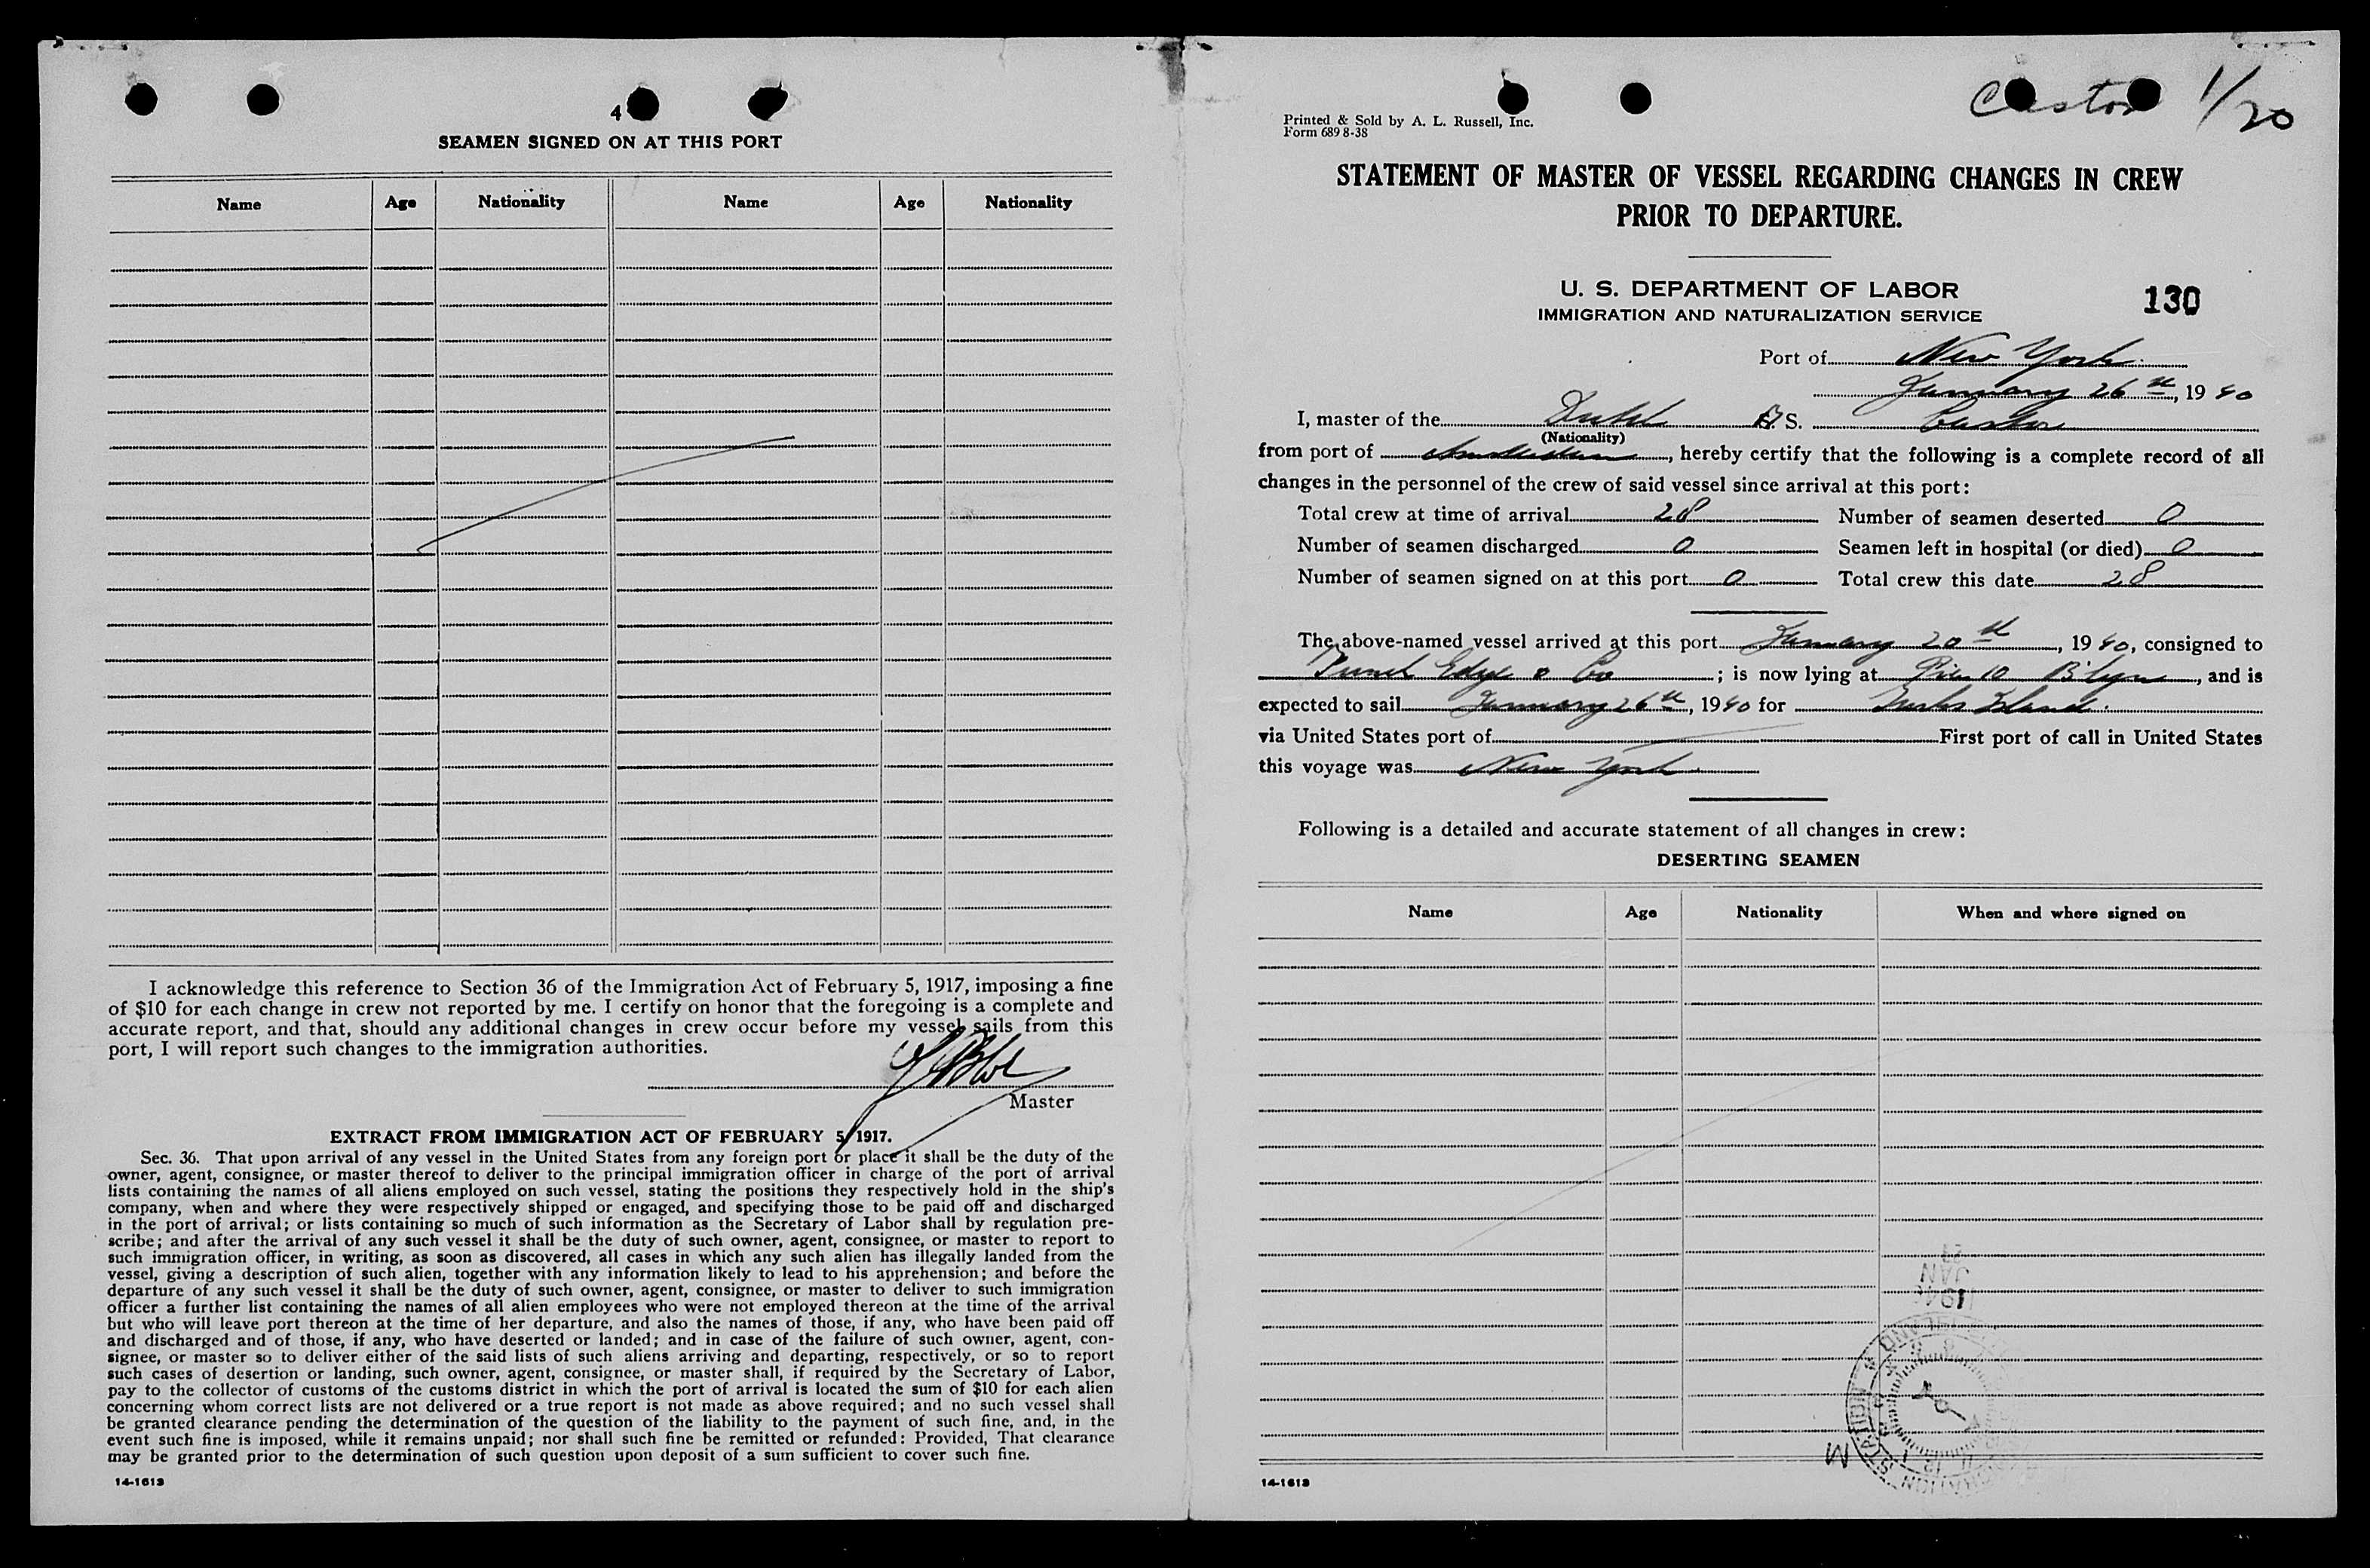 4
SEAMEN SIGNED ON AT THIS PORT
Name Age Nationality Name Age Nationality
I acknowledge this reference to Section 36 of the Immigration Act of February 5, 1917, imposing a fine
of $10 for each change in crew not reported by me. I certify on honor that the foregoing is a complete and
accurate report, and that, should any additional changes in crew occur before my vessel sails from this
port, I will report such changes to the immigration authorities.
Master
EXTRACT FROM IMMIGRATION ACT OF FEBRUARY 5, 1917.
Sec. 36. That upon arrival of any vessel in the United States from any foreign port or place it shall be the duty of the
owner, agent, consignee, or master thereof to deliver to the principal immigration officer in charge of the port of arrival
lists containing the names of all aliens employed on such vessel, stating the positions they respectively hold in the ship's
company, when and where they were respectively shipped or engaged, and specifying those to be paid off and discharged
in the port of arrival; or lists containing so much of such information as the Secretary of Labor shall by regulation pre-
scribe; and after the arrival of any such vessel it shall be the duty of such owner, agent, consignee, or master to report to
such immigration officer, in writing, as soon as discovered, all cases in which any such alien has illegally landed from the
vessel, giving a description of such alien, together with any information likely to lead to his apprehension; and before the
departure of any such vessel it shall be the duty of such owner, agent, consignee, or master to deliver to such immigration
officer a further list containing the names of all alien employees who were not employed thereon at the time of the arrival
but who will leave port thereon at the time of her departure, and also the names of those, if any, who have been paid off
and discharged and of those, if any, who have deserted or landed; and in case of the failure of such owner, agent, con-
signee, or master so to deliver either of the said lists of such aliens arriving and departing, respectively, or so to report
such cases of desertion or landing, such owner, agent, consignee, or master shall, if required by the Secretary of Labor,
pay to the collector of customs of the customs district in which the port of arrival is located the sum of $10 for each alien
concerning whom correct lists are not delivered or a true report is not made as above required; and no such vessel shall
be granted clearance pending the determination of the question of the liability to the payment of such fine, and, in the
event such fine is imposed, while it remains unpaid; nor shall such fine be remitted or refunded: Provided, That clearance
may be granted prior to the determination of such question upon deposit of a sum sufficient to cover such fine.
14-1613
Castor 1/20
Printed & Sold by A. L. Russell, Inc.
Form 689 8-38
STATEMENT OF MASTER OF VESSEL REGARDING CHANGES IN CREW
PRIOR TO DEPARTURE.
U. S. DEPARTMENT OF LABOR
IMMIGRATION AND NATURALIZATION SERVICE
130
Port of New York
January 26th, 1940
I, master of the Dutch S. Castor
(Nationality)
from port of Amsterdam, hereby certify that the following is a complete record of all
changes in the personnel of the crew of said vessel since arrival at this port:
Total crew at time of arrival 28 Number of seamen deserted 0
Number of seamen discharged 0 Seamen left in hospital (or died) 0
Number of seamen signed on at this port 0 Total crew this date 28
The above-named vessel arrived at this port January 20th, 1940, consigned to
Funch Edye & Co; is now lying at Pier 10 B'lyn, and is
expected to sail January 26th, 1940 for Turks Island.
via United States port of First port of call in United States
this voyage was New York.
Following is a detailed and accurate statement of all changes in crew:
DESERTING SEAMEN
Name Age Nationality When and where signed on
JAN
M
14-1613